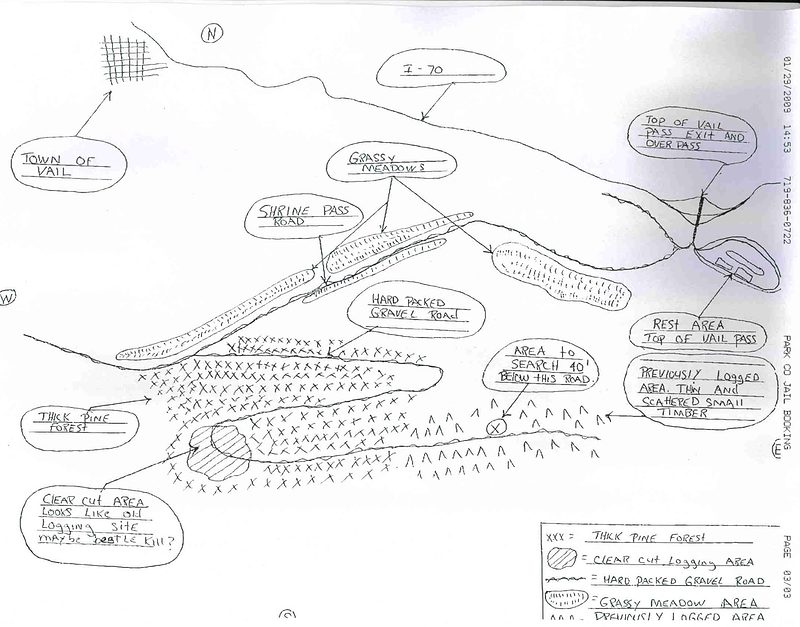 N
I-70
TOWN OF
VAIL
GRASSY
MEADOWS
TOP OF VAIL
PASS EXIT AND
OVER PASS
SHRINE PASS
ROAD
W
HARD PACKED
GRAVEL ROAD
REST AREA
TOP OF VAIL PASS
AREA to
SEARCH 40'
BELOW THIS ROAD.
PREVIOUSLY LOGGED
AREA. THIN AND
SCATERED SMALL
TIMBER
THICK PINE
FOREST
X
E
CLEAR CUT AREA
LOOKS LIKE Old
Logging SITE
maybe beatle kill?
XXX = THICK PINE FOREST
= CLEAR CUT Logging AREA
= HARD PACKED GRAVEL ROAD
= GRASSY MEADOW AREA
= PREVIOUSLY LOGGED AREA
01/29/2009 14:53 719-836-0722 PARK CO JAIL BOOKING PAGE 03/03